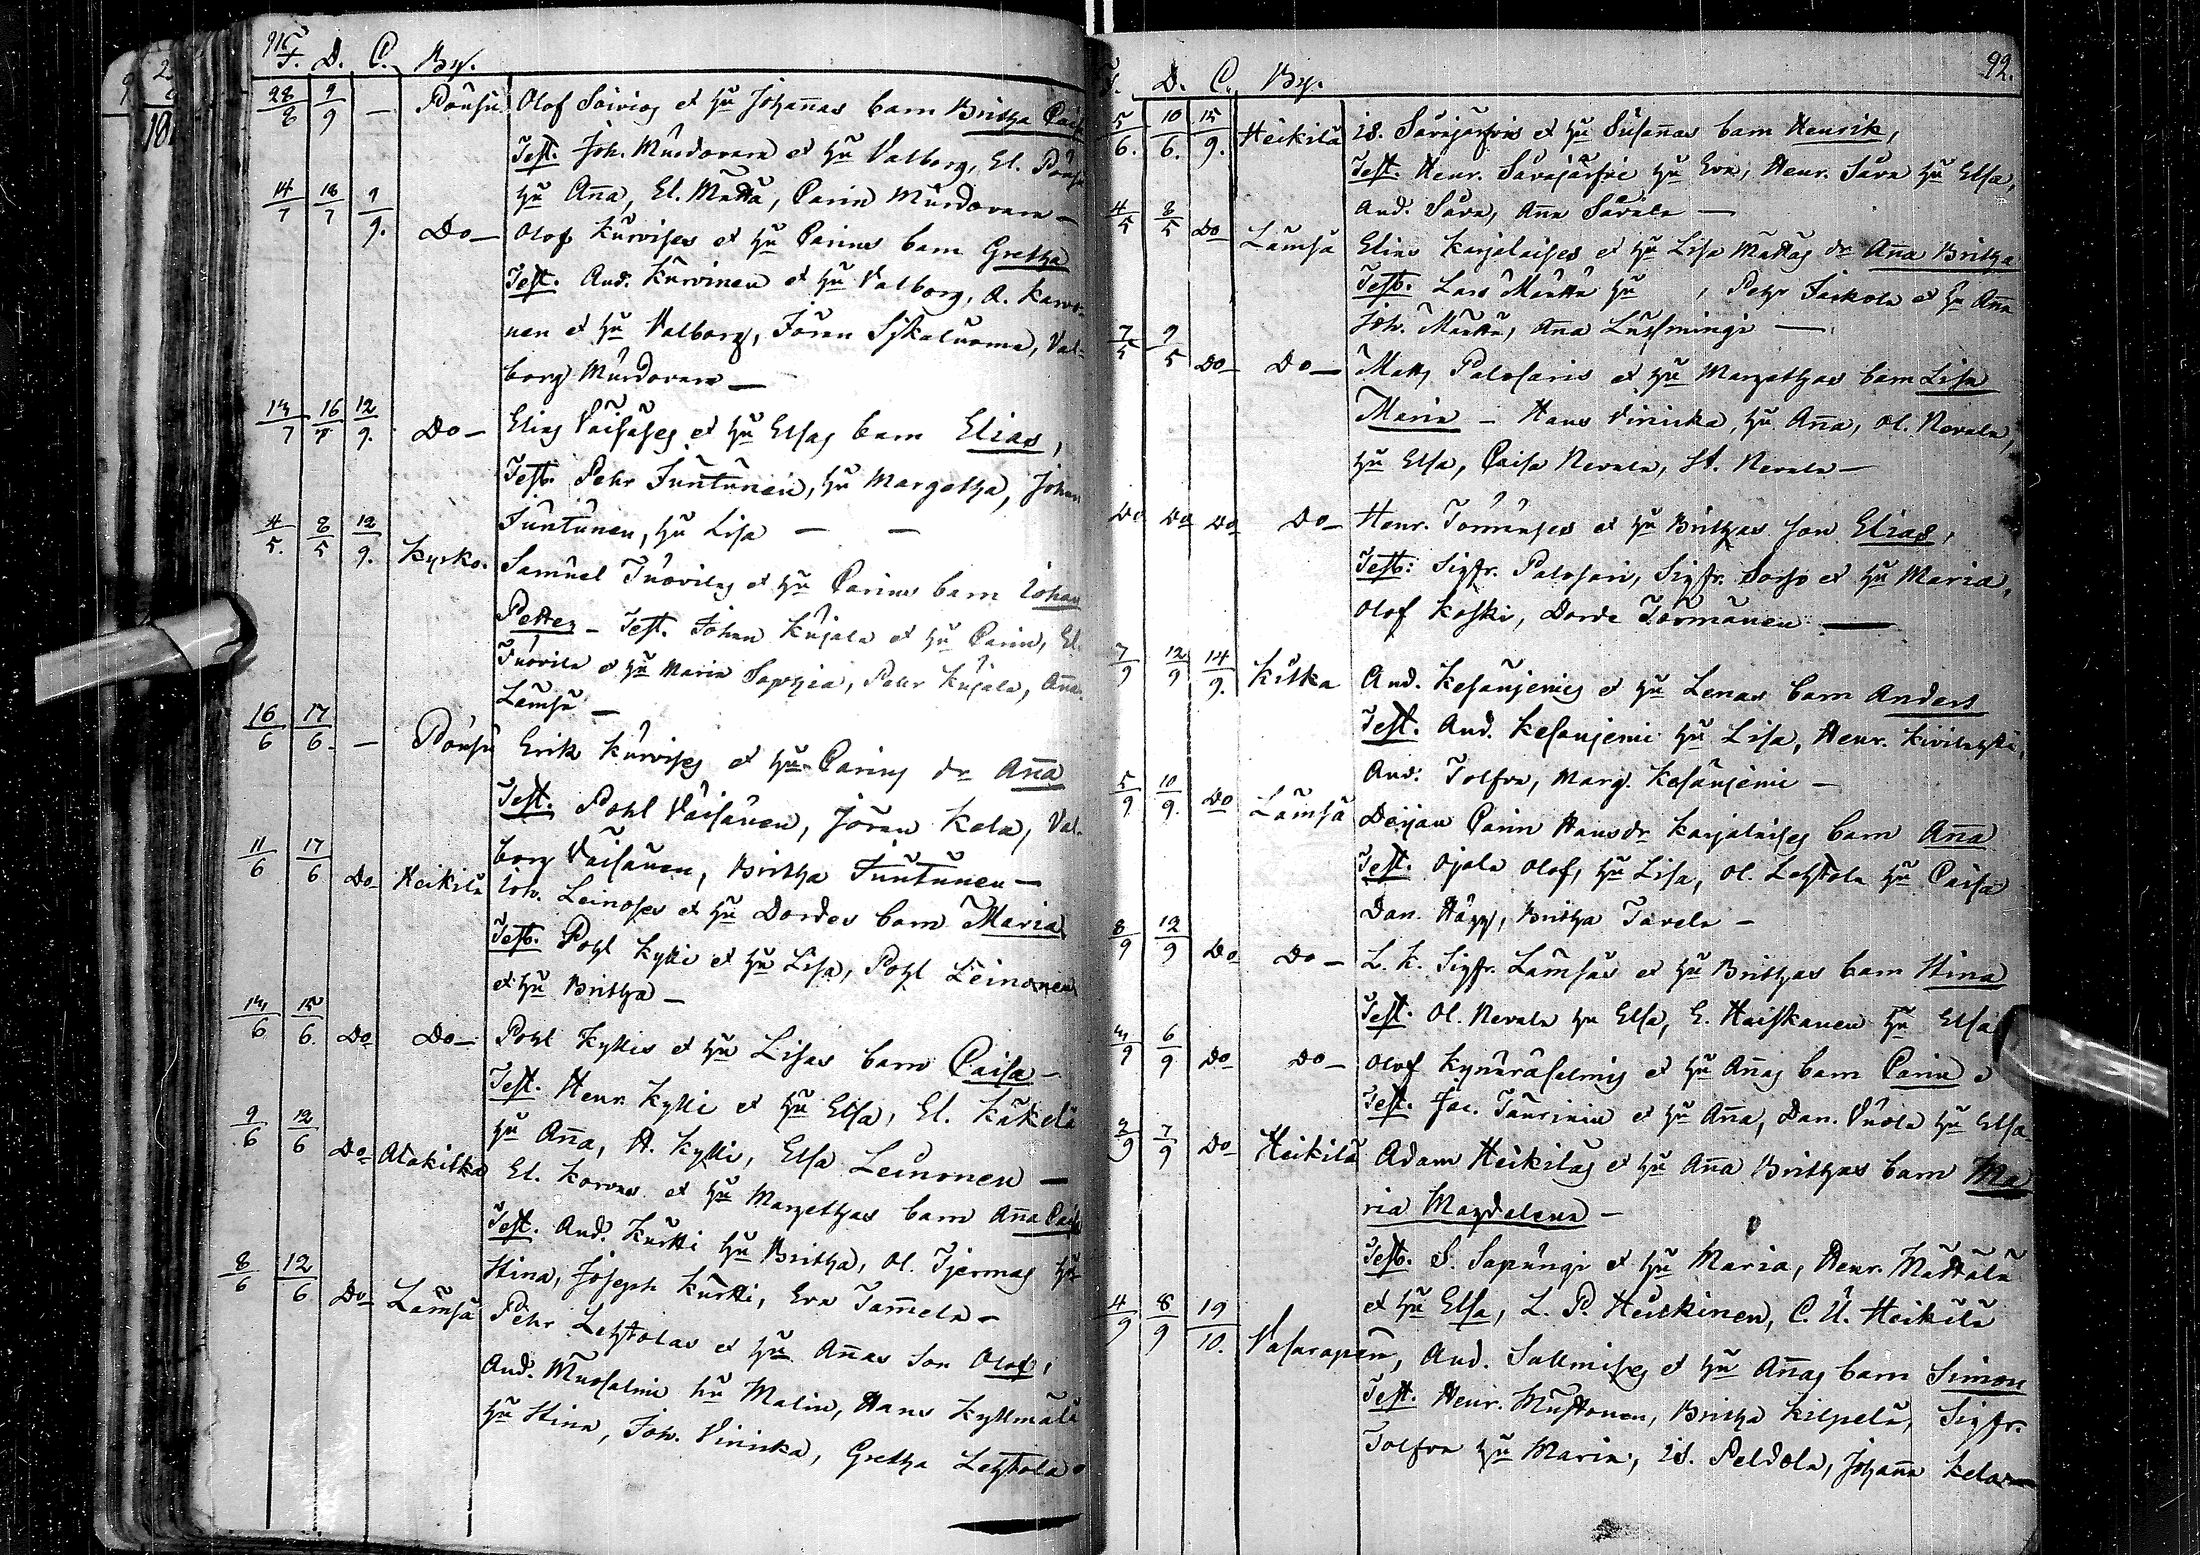 91.
F. D. C. By.
28/8 9/9 — Pousu Olof Soivios et hu Johañas barn Britha Caisa
Test. Joh. Murdovara et hu Valborg, El. Pousu
hu Aña, El. Määttä, Carin Murdovara —
14/7 18/7 9/9. Do— Olof Kurvises et hu Carins barn Gretha
Test. And. Kurvinen et hu Valborg, A. Karvo-
nen et hu Valborg, Jöran Sykaluoma, Val-
borg Murdovara —
13/7 16/7 12/9. Do— Elias Väisäses et hu Elsas barn Elias,
Test. Pehr Juntunen, hu Margetha, Johan
Juntunen, hu Lisa — —
4/5. 8/5 12/9. Kyrko. Samuel Tuovilas et hu Carins barn Johan
Petter — Test. Johan Kujala et hu Carin, El.
Tuovila et hu Maria Sophia, Pehr Kujala, Aña
Lämsä —
16/6 17/6. — Pousu Erik Kurvises et hu Carins dr Aña
Test. Pohl Väisänen, Jöran Kela, Val-
borg Väisänen, Britha Juntunen —
11/6 17/6 Do Heikilä Joh. Leinoses et hu Dordes barn Maria
Test. Pohl Kylli et hu Lisa, Pohl Leinonen
et hu Britha —
13/6 15/6. Do Do— Pohl Kyllis et hu Lisas barn Caisa —
Test. Henr. Kylli et hu Elsa, El. Käkelä
hu Aña, A. Kylli, Elsa Leinonen —
9/6 12/6 Do Alakitka El. Korvas et hu Margethas barn Aña Caisa
Test. And. Kurtti hu Britha, Ol. Tjermas hu
Stina, Joseph Kurtti, Eva Tam̃ela —
8/6 12/6 Do Lämsä Pehr Lehtolas et hu Añas son Olof,
And. Mursalmi hu Malin, Hans Kyllmälä
hu Stina, Joh. Vinicka, Gretha Lehtola
92.
F. D. C. By.
5/6. 10/6. 15/9. Heikilä Is. Säväjärfvis et hu Susañas barn Henrik,
Test. Henr. Säväjärfvi hu Eva, Henr. Sara hu Elsa,
And. Sara, Aña Säväle —
4/5 8/5 Do Lämsä Elias Karjalaises et hu Lisa Mattas dr Aña Britha
Test. Lars Määttä hu , Petr Jaakola et hu Aña
Joh. Määttä, Aña Lusmingi —
7/5 9/5 Do Do— Matts Palosaris et hu Margethas barn Lisa
Maria — Hans Vinicka, hu Aña, Ol. Nevala,
hu Elsa, Caisa Nevala, St. Nevala —
Do Do Do Do— Henr. Törmänses et hu Brithas son Elias,
Test: Sigfr. Palosari, Sigfr. Sorso et hu Maria,
Olof Koski, Dorde Törmänen —
7/9 12/9 14/9. Kitka And. Kesäniemis et hu Lenas barn Anders
Test. And. Kesänjemi hu Lisa, Henr. Kivilahti,
And. Tolfva, Marg. Kesänjemi —
5/9 10/9. Do Lämsä Pigan Carin Hansdr Karjalaises barn Aña
Test. Ojala Olof, hu Lisa, Ol. Lehtola hu Caisa
Dan. Hägg, Britha Tavela —
8/9 12/9 Do Do— L. K. Sigfr. Lämsäs et hu Brithas barn Stina
Test. Ol. Nevala hu Elsa, E. Haiskanen hu Elsa
3/9 6/9 Do Do— Olof Kynäräsalmis et hu Añas barn Carin
Test. Jac. Taurinin et hu Aña, Dan. Vuole hu Elsa
2/9 7/9 Do Heikilä Adam Heikiläs et hu Aña Brithas barn Ma
ria Magdalena —
Test. S. Sapungi et hu Maria, Henr. Mattala
et hu Elsa, L. P. Heiskinen, C. U. Heikilä
4/9 8/9 19/10. Vasaraperä, And. Sallmises et hu Añas barn Simon
Test. Henr. Mustonen, Britha Kilpelä, Sigfr.
Tolfva hu Maria, Is. Peldola, Johaña Kela —